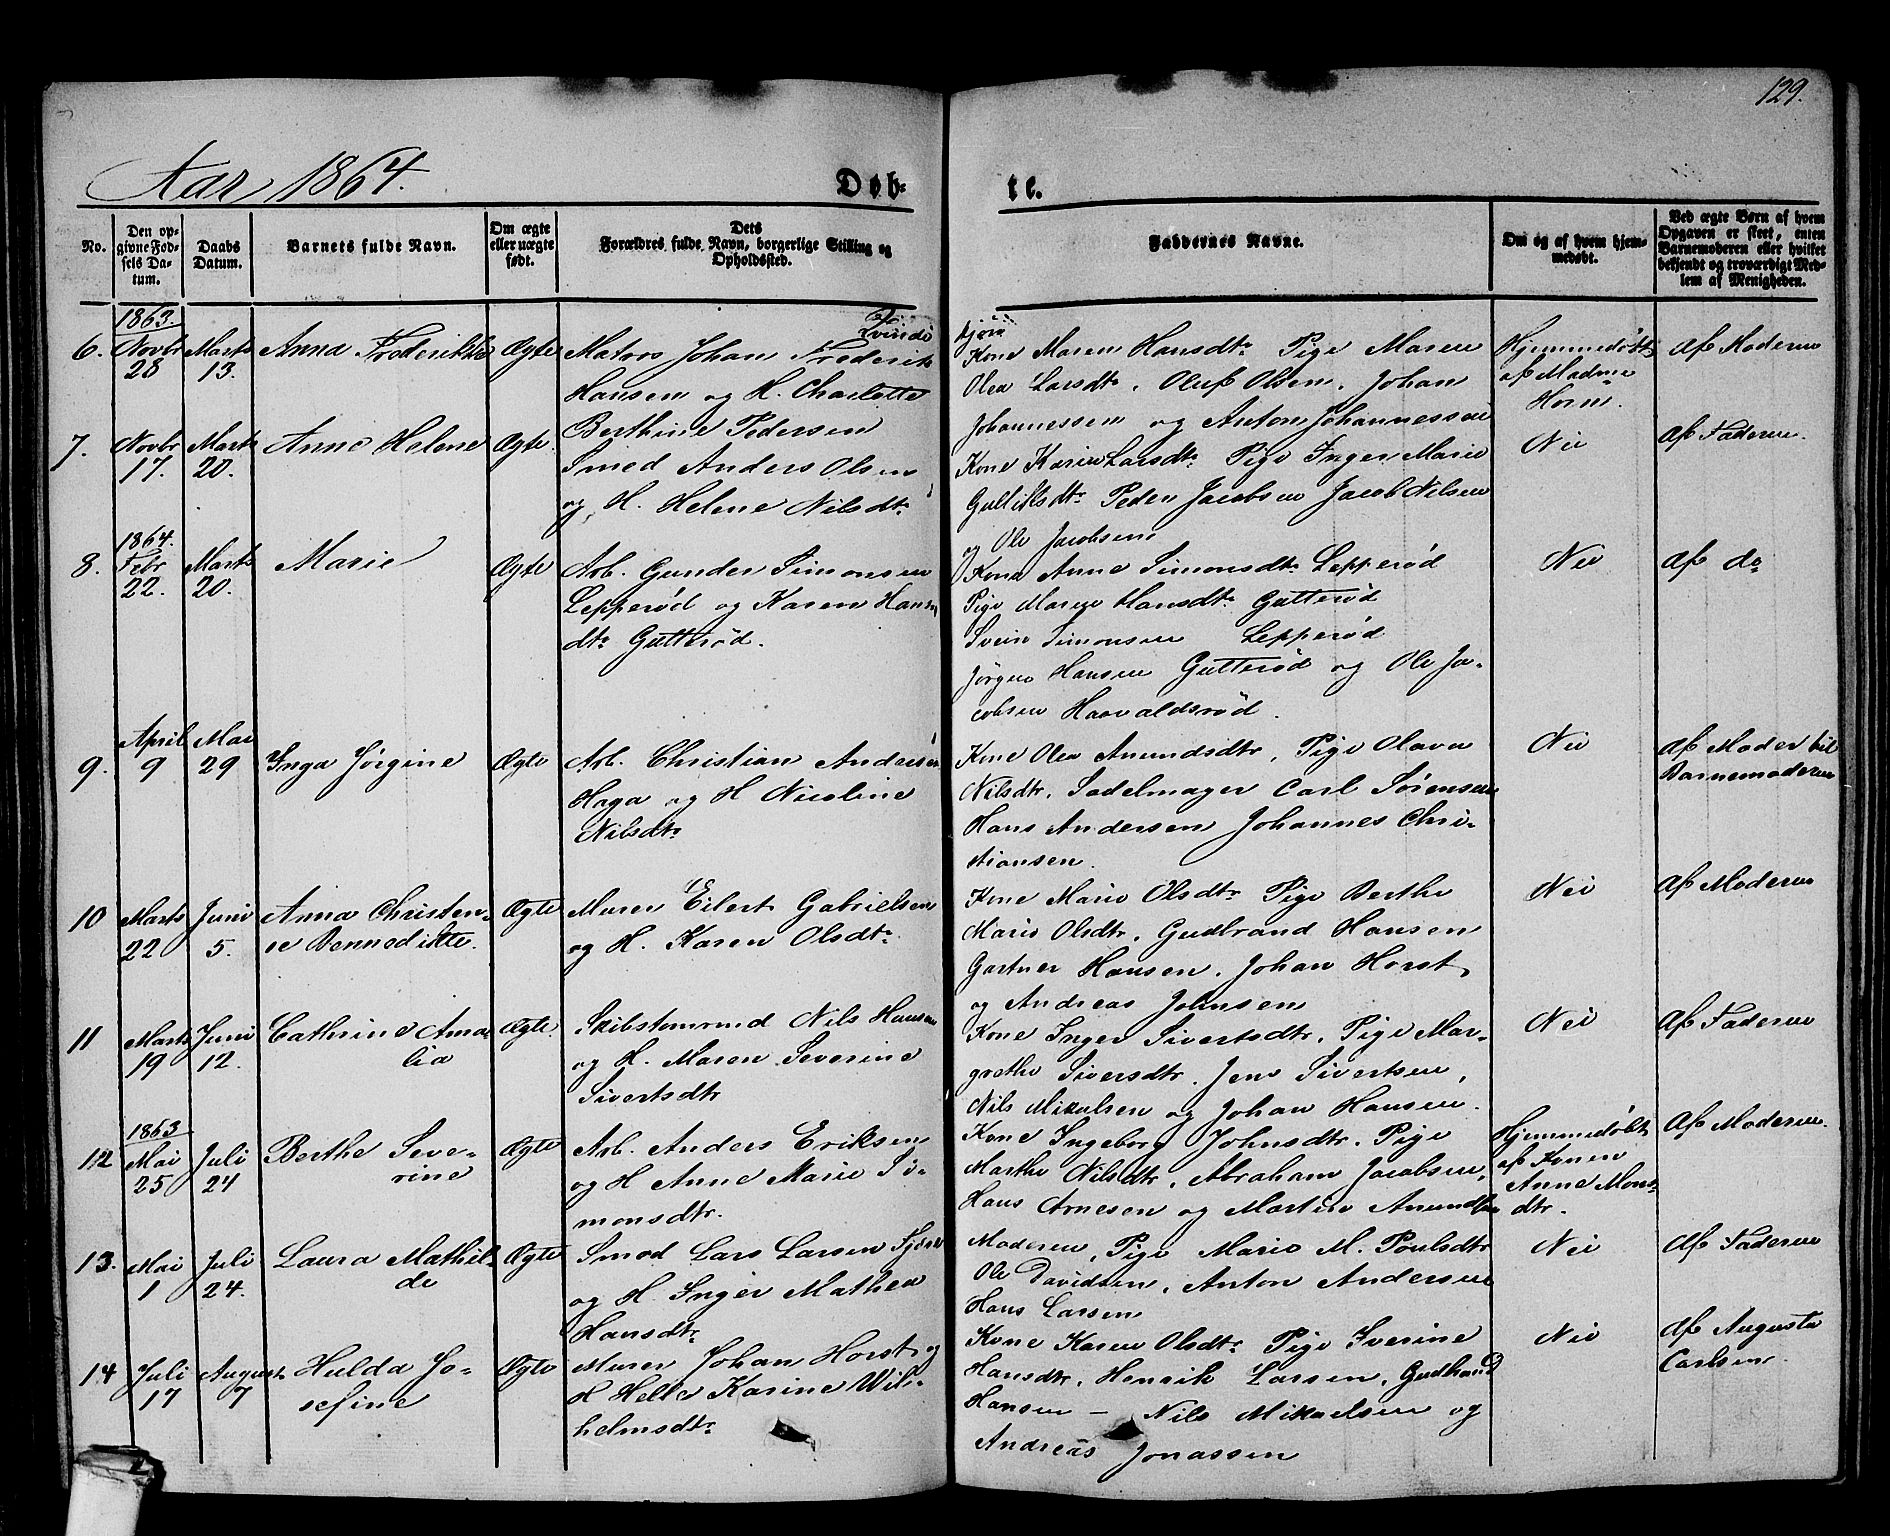 129.
Aar 1864.
Døb-
te.
No.
Den op-
givne Fød-
sels Da-
tum.
Daabs
Datum.
Barnets fulde Navn.
Om ægte
eller uægte
født.
Dets
Forældres fulde Navn, borgerlige Stilling og
Opholdssted.
Faddernes Navne.
Om og af hvem hjem-
medøbt.
Ved ægte Børn af hvem
Opgaven er skeet, enten
Barnemoderen eller hvilket
bekjendt og troværdigt Med-
lem af Menigheden.
1863.
6.
Novbr
28
Marts
13.
Anna Frederikke
Ægte
Matros Johan Frederik
Hansen og H. Charlotte
Berthine Pedersen
Kone Maren Hansdtr Pige Maren
Olea Larsdtr. Oluf Olsen. Johan
Johannessen og Anton Johannessen
Hjemmedøbt
af Madme
Horn.
Af Moderen
7.
Novbr
17.
Marts
20.
Anne Helene
Ægte.
Smed Anders Olsen
og H. Helene Nilsdtr
Kone Karen Larsdtr Pige Inger Marie
Gulliksdtr Peder Jacobsen Jacob Nilsen
og Ole Jacobsen
Nei
Af Faderen.
1864.
8.
Febr
22.
Marts
20.
Marie
Ægte
Arb. Gunder Simonsen
Lepperød og Karen Hans
dtr Gutterød.
Kone Anne Simonsdtr Lepperød
Pige Maren Hansdtr Gutterød
Svein Simonsen Lepperød
Jørgen Hansen Gutterød og Ole Ja-
cobsen Haavaldsrød.
Nei
Af do
9.
April
9
Mai
29
Inga Jørgine
Ægte
Arb. Christian Andersen
Haga og H Nicoline
Nilsdtr
Kone Olea Amundsdtr, Pige Olava
Nilsdtr. Sadelmager Carl Sørensen
Hans Andersen Johannes Chri-
stiansen.
Nei
Af Moder til
Barnemoderen
10
Marts
22
Juni
5.
Anna Christen-
se Bennedikte.
Ægte
Murer Eilert Gabrielsen
og H. Karen Olsdtr
Kone Marie Olsdtr Pige Berthe
Marie Olsdtr. Gudbrand Hansen
Gartner Hansen. Johan Horst,
og Andreas Johnsen
Nei
Af Moderen
11
Marts
19
Juni
12.
Cathrine Ama-
lia
Ægte.
Skibstømmd Nils Hansen
og H. Maren Severine
Sivertsdtr
Kone Inger Sivertsdtr, Pige Mar-
grethe Siversdtr. Jens Sivertsen,
Nils Mikalsen og Johan Hansen.
Nei
Af Faderen
1863
12
Mai
25
Juli
24
Berthe Seve-
rine
Ægte
Arb. Anders Eriksen
og H Anne Marie Si-
monsdtr.
Kone Ingeborg Johnsdtr. Pige
Marthe Nilsdtr, Abraham Jacobsen,
Hans Arnesen og Martin Amundsen
Hjemmedøbt
af Konen
Anne Mons-
dtr.
Af Moderen.
13.
Mai
1
Juli
24.
Laura Mathil-
de
Ægte
Smed Lars Larsen
og H. Inger Mathea
Hansdtr
Moderen, Pige Marie M. Poulsdtr
Ole Davidsen, Anton Andersen
Hans Larsen
Nei
Af Faderen
14
Juli
17
August
7
Hulda Jo-
sefine
Ægte
Murer Johan Horst og
H Helle Karine Wil-
helmsdtr
Kone Karen Olsdtr Pige Iverine
Hansdtr, Henrik Larsen, Gudbrand
Hansen – Nils Mikaelsen og
Andreas Jonassen
Nei
Af Augusta
Carlsen.